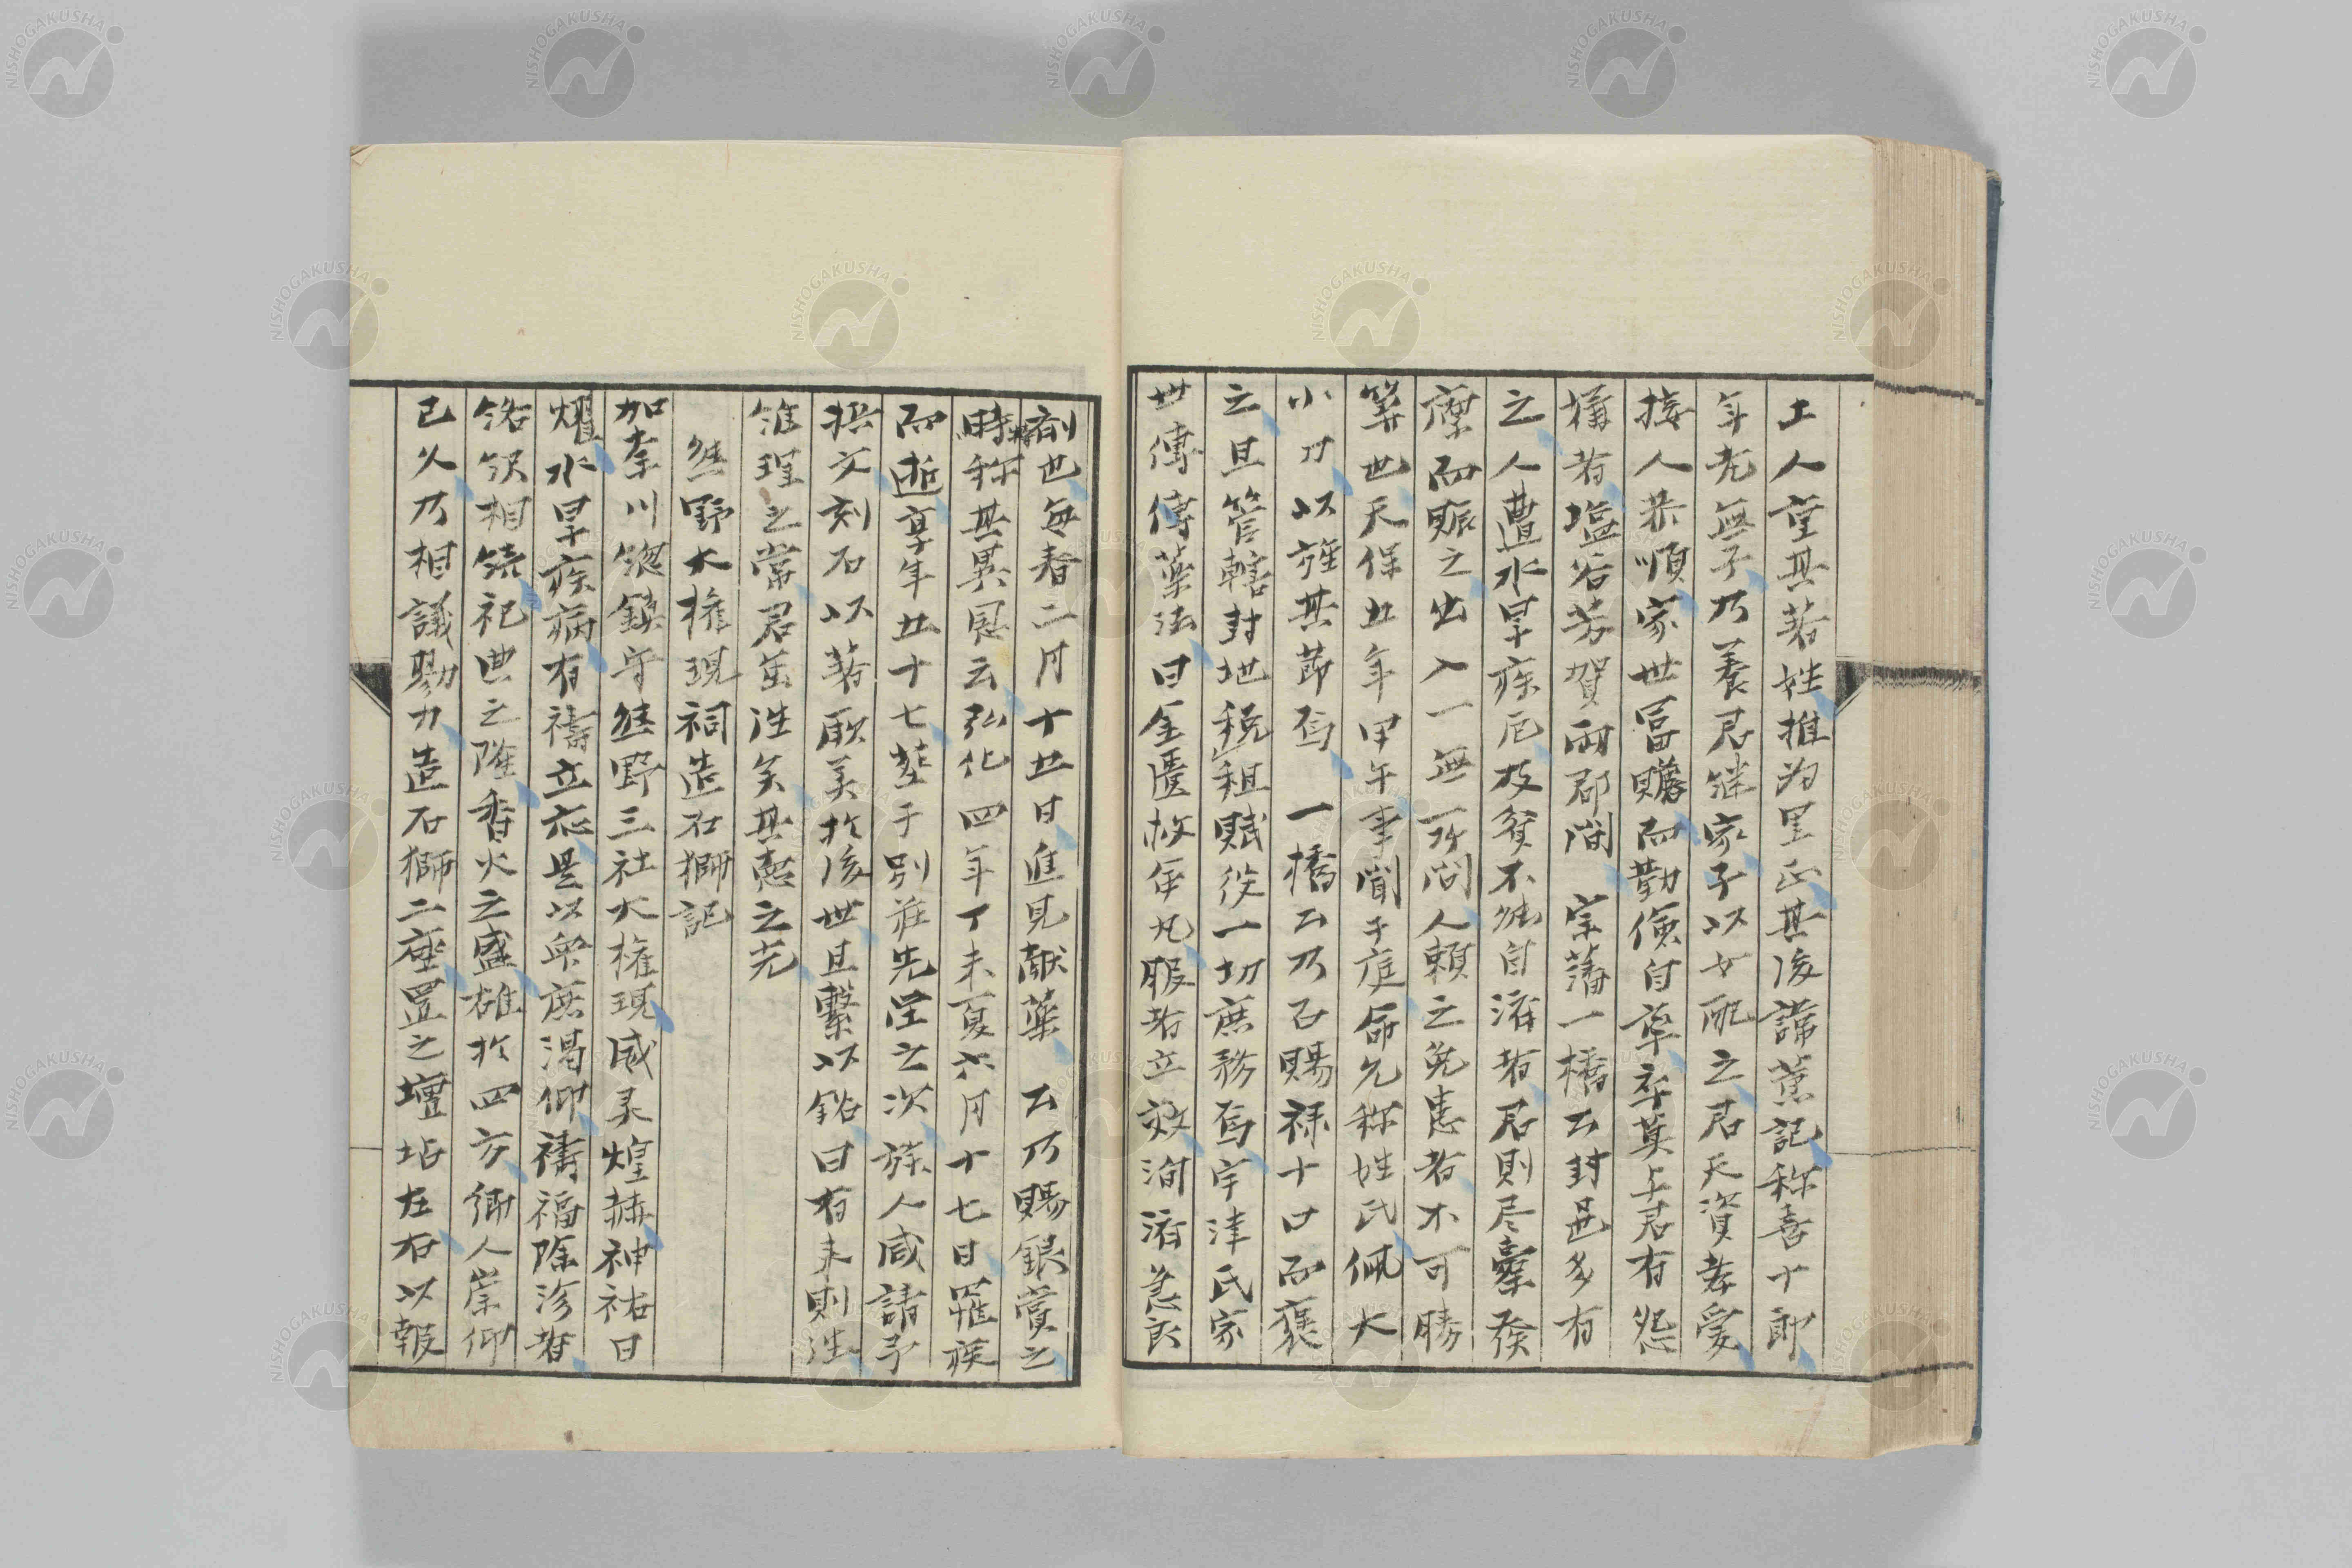 土人重其著姓推為里正其後諱薫記称喜十郎
年老無子乃養君継家子以女配之君天資孝愛
接人恭順家世冨贍而勤倹自率卒莫上君有怨
隙者塩谷芳賀両郡間 宗藩一橋公封邑多有
之人遭水旱疾厄及貧不能自済者君則尽橐發
廩而賑之出入一無所問人頼之免患者不可勝
算也天保五年甲午事聞于庭命允称姓氏佩大
小刀以旌其節焉 一橋公乃召賜禄十口而褒
之旦管轄封地税租賦役一切庶務焉宇津氏家
世傳傳薬法曰金匱救命凡服者立效洵済急良
剤也毎春二月十五日進見献薬 公乃賜銀賞之
時称其異恩云弘化四年丁未夏六月十七日罹疾
而逝享年五十七葬于別荘先塋之次族人咸請予
撰文刻石以著厥美於後世且繋以銘曰有来則往
惟理之常君茲往矣其悳之光
熊野大権現祠造石獅記
加李川総鎮守熊野三社大権現威灵煌赫神祐日
燿水旱疾病有禱立応是以衆庶渇仰禱福除沴者
絡繹相繞祀典之隆香火之盛雄於四方郷人崇仰
已久乃相議勠力造石獅二座置之壇坫左右以報